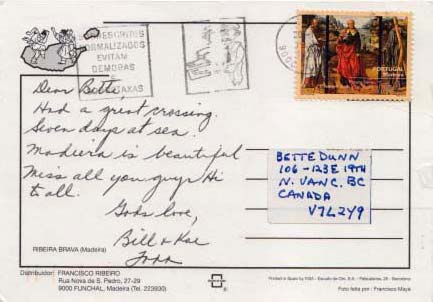 SOBRESCRITOS
NORMALIZADOS
EVITAM
DEMORAS
TAXAS
PORTUGAL
Dear Bette,
Had a great crossing.
Seven days at sea.
Madiera is beautiful
Miss all you guys Hi
to all.
Gods love,
Bill & Kae
BETTE DUNN
106-123E 19TH
N. VANC. BC
CANADA
V7L2Y9
RIBEIRA BRAVA (Madeira)
Distribuidor: FRANCISCO RIBEIRO
Rua Nova de S. Pedro, 27-29
9000 FUNCHAL, Madeira (Tel. 223930)
Printed in Spain by FISA - Escudo de Oro, S.A. - Palaudarias, 26 - Barcelona
Foto feita por: Francisco Maya